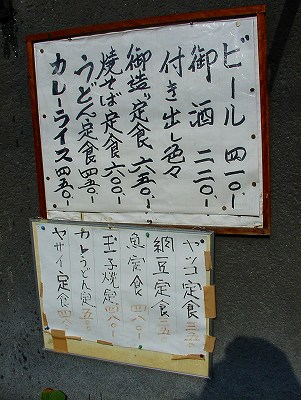 ビール 四一〇.
御酒 二二〇.
付き出し色々
御造り定食 六五〇.
焼そば定食 六〇〇.
うどん定食 四五〇.
カレーライス 四五〇.
ヤッコ定食 三三〇
納豆定食 三五〇
魚定食 四八〇
玉子焼定 四八〇
カレうどん定 五〇
ヤサイ定食 四